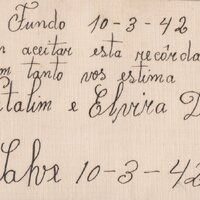 Fundo 10-3-42
aceitar esta recórda
m tanto vos estima
talim e Elvira D
Salve 10-3-42